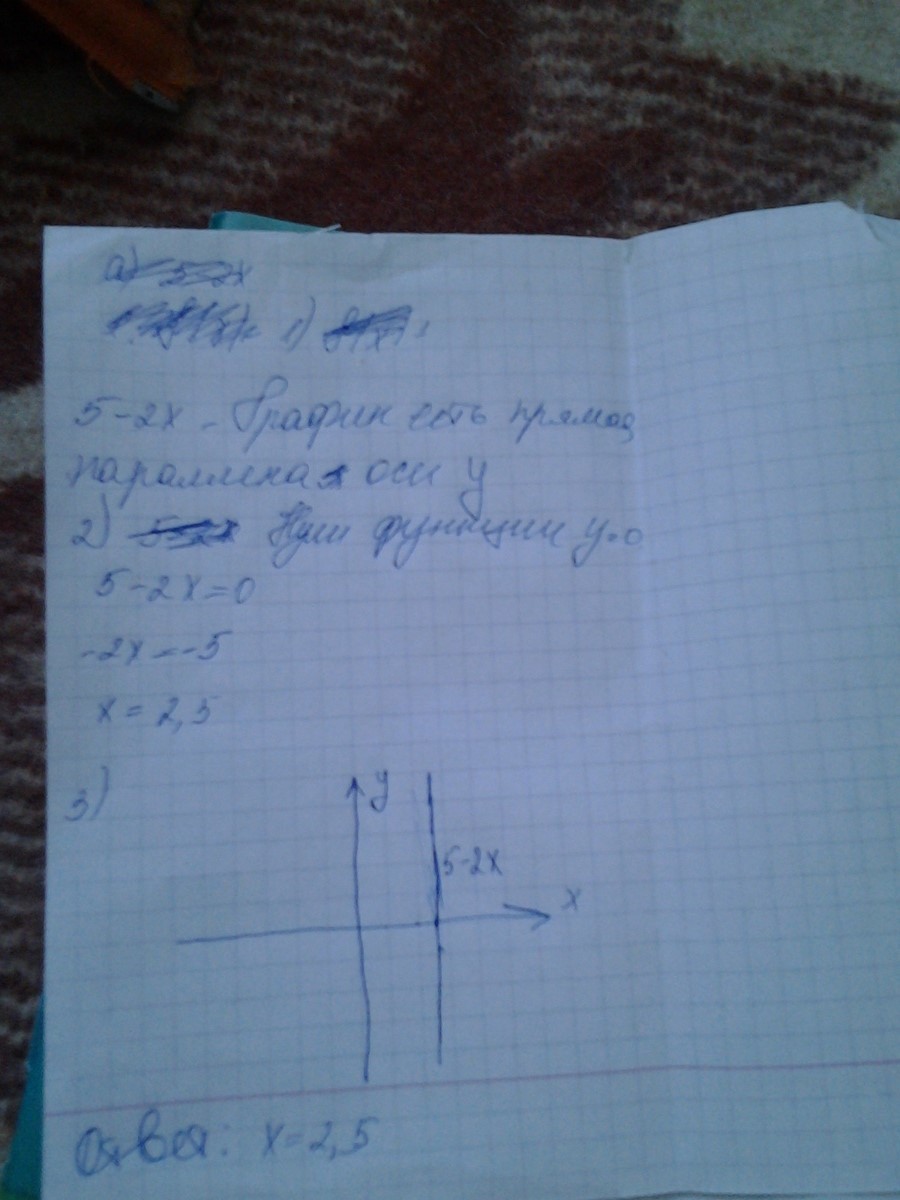 а) 5-2x
1)
5-2x - График есть прямая
параллена оси y
2) 5-2x Нули функции y=0
5-2x=0
-2x=-5
x = 2,5
3)
y
5-2x
x
Ответ: x=2,5